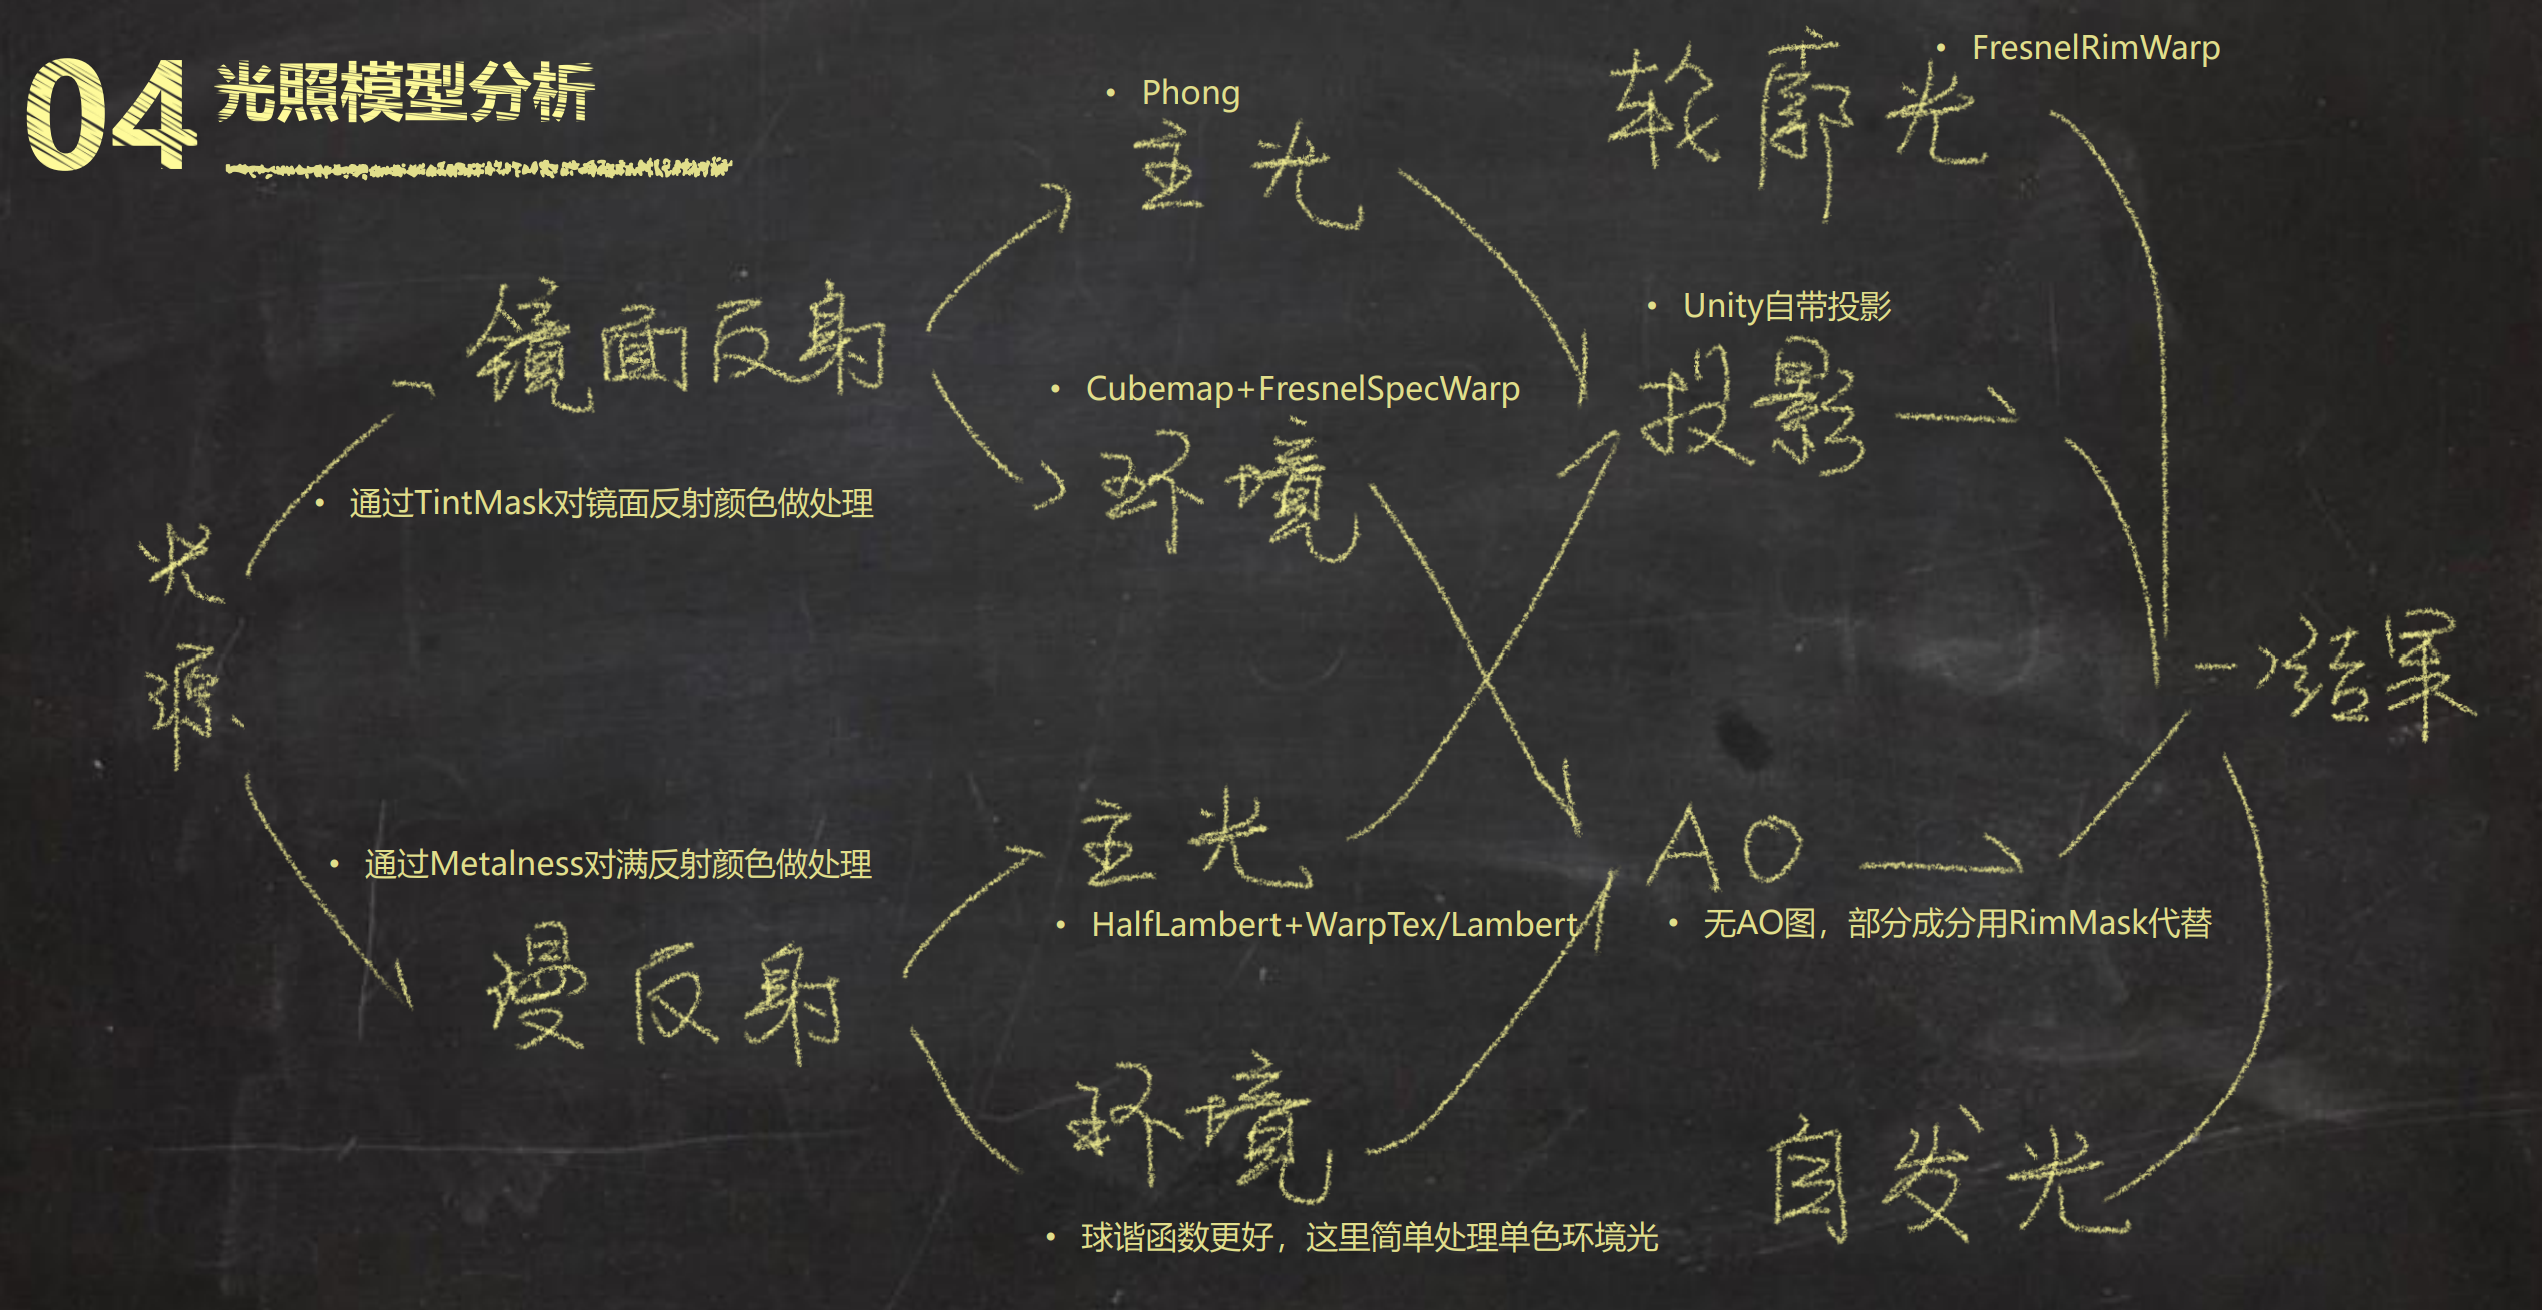 04 光照模型分析
• FresnelRimWarp
轮廓光
• Phong
主光
镜面反射
• 通过TintMask对镜面反射颜色做处理
• Cubemap+FresnelSpecWarp
环境
• Unity自带投影
投影
光源
结果
• 通过Metalness对满反射颜色做处理
漫反射
主光
• HalfLambert+WarpTex/Lambert
AO
• 无AO图，部分成分用RimMask代替
环境
• 球谐函数更好，这里简单处理单色环境光
自发光